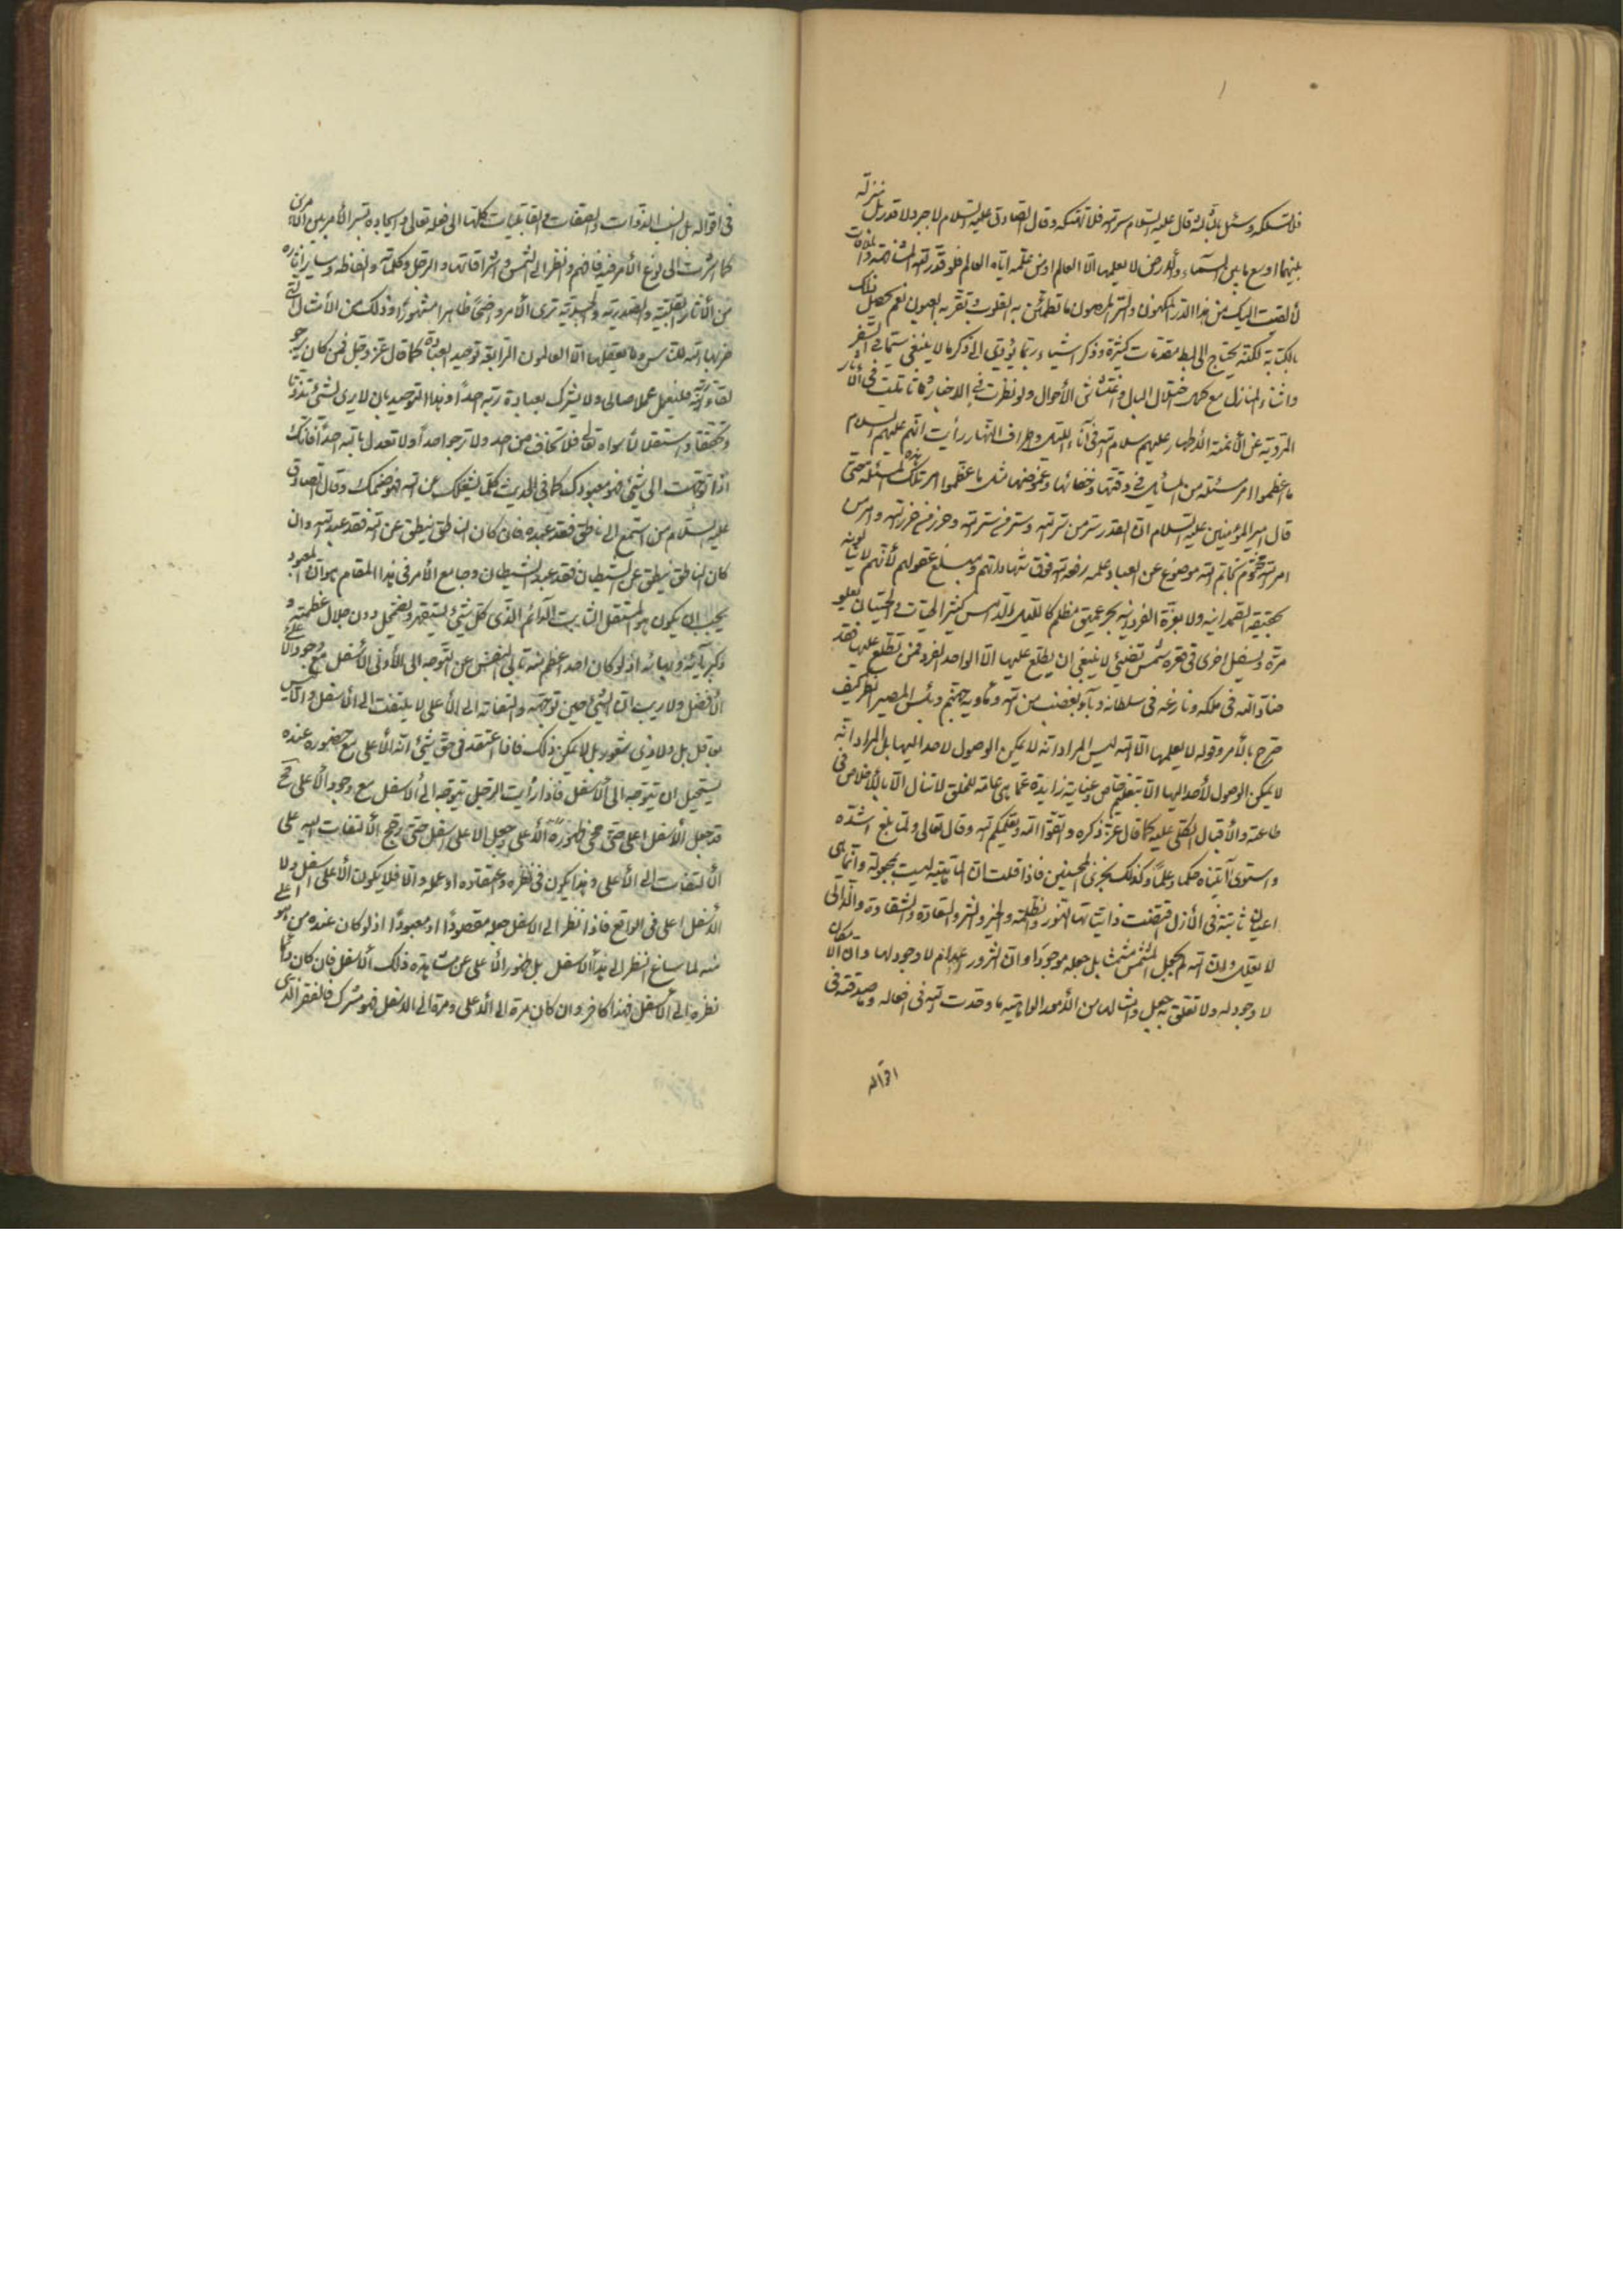 فلا تسلكه وسئل ثالثة قال عليه السلام سر الله فلا تهتكه وقال الصادق عليه السلام لا جبر ولا قدر بل منزلة
بينهما اوسع ما بين السماء والأرض لا يعلمها الا العالم او من علمه اياه العالم فلو قدر الله المشافهة والملاقات
لألقيت اليك من هذا الدر المكنون والسر المصون ما تطمئن به القلوب وتقر به العيون نعم يحصل ذلك
بالكتابة لكنه يحتاج الى بسط مقدمات كثيرة وذكر اشياء ربما يؤدي الى ذكر ما لا ينبغي سيما في السفر
واثناء المنازل مع كمال اختلال البال واغتشاش الأحوال ولو نظرت في الاخبار وتأملت في الآثار
المروية عن الأئمة الأطهار عليهم سلام الله في آناء الليل واطراف النهار رأيت انهم عليهم السلام
ما عظموا امر مسئلة من المسائل في دقتها وخفائها وغموضها مثل ما عظموا امر تلك المسئلة حتى
قال امير المؤمنين عليه السلام ان القدر سر من سر الله وستر من ستر الله وحرز من حرز الله وامر من
امر الله مختوم بخاتم الله موضوع عن العباد علمه رفعه الله فوق شهاداتهم ومبلغ عقولهم لأنهم لا ينالونه
بحقيقة الصمدانية ولا بعزة الفردانية بحر عميق مظلم كالليل الدامس كثير الحيات والحيتان يعلو
مرة ويسفل اخرى في قعره شمس تضئ لا ينبغي ان يطلع عليها الا الواحد الفرد فمن تطلع عليها فقد
ضاد الله في ملكه ونازعه في سلطانه وباء بغضب من الله ومأويه جهنم وبئس المصير انظر كيف
صرح بالأمر وقوله لا يعلمها الا الله ليس المراد انه لا يمكن الوصول لاحد اليها بل المراد انه
لا يمكن الوصول لأحد اليها الا بتعليم خاص وعناية زايدة عما هي عامة للخلق لا تنال الا بالأخلاص في
طاعته والأقبال الكلي عليه كما قال عز ذكره واتقوا الله ويعلمكم الله وقال تعالى ولما بلغ اشده
واستوى آتيناه حكما وعلما وكذلك نجزي المحسنين فاذا قلت ان الماهية ليست بمجعولة وانما هي
اعيان ثابتة في الأزل اقتضت ذاتياتها النور والظلمة والخير والشر والسعادة والشقاوة والذاتي
لا يعلل وان الله لم يجعل المشمش مشمشا بل جعله موجودا وان الشرور اعدام لا وجود لها وان الامكان
لا وجود له ولا تعلق به جعل وامثالها من الأمور الواهية ما وحدت الله في افعاله وما صدقته في
اقواله
في اقواله بل انسب الذوات والصفات والقابليات كلها الى فعله تعالى وايجاده بسر الأمر بين الأمرين
كما اشرت الى نوع الأمر فيه فافهم وانظر الى الشمس واشراقاتها والرجل وكلماته والفاظه وسائر آثاره
من الآثار القلبية والصدرية والجسدية ترى الأمر واضحا ظاهرا مشهورا وذلك من الأمثال التي
ضربها الله للناس وما يعقلها الا العالمون الرابع توحيد العبادة كما قال عز وجل فمن كان يرجو
لقاء ربه فليعمل عملا صالحا ولا يشرك بعبادة ربه احدا وهذا التوحيد بان لا يرى لشئ تذوتا
وتحققا واستقلالا سواه تعالى فلا تخاف من احد ولا ترجوا احدا ولا تعدل بالله احدا فانك
اذا توجهت الى شئ فهو معبودك كما في الحديث كلما يشغلك عن الله فهو صنمك وقال الصادق
عليه السلام من استمع الى ناطق فقد عبده فان كان الناطق ينطق عن الله فقد عبد الله وان
كان الناطق ينطق عن الشيطان فقد عبد الشيطان وجامع الأمر في هذا المقام هو ان المعبود
يجب ان يكون هو المستقل الثابت الدائم الذي كل شئ يستقهر ويضمحل دون جلال عظمته و
كبريائه وبهائه اذ لو كان احد اعظم منه تأبى النفس عن التوجه الى الأدنى الأسفل مع وجود الأعلى
الأفضل ولا ريب ان الشئ حين توجهه والتفاته الى الأعلى لا يلتفت الى الأسفل والا ليس
بعاقل بل ولا ذي شعور بل لا يمكن ذلك فاذا اعتقد في حق شئ انه الأعلى مع حضوره عنده
يستحيل ان يتوجه الى الأسفل فاذا رأيت الرجل يتوجه الى الأسفل مع وجود الأعلى
قد جعل الأسفل اعلى حتى محى ظهوره الأعلى وجعل الاعلى اسفل حتى رجح الألتفات اليه على
الألتفات الى الأعلى وهذا يكون في نظره واعتقاده او عمله والا فلا يكون الأعلى اسفل ولا
الأسفل اعلى في الواقع فاذا نظر الى الاسفل جعله مقصودا او معبودا اذ لو كان عنده من هو اعلى
منه لما ساغ النظر الى هذا الأسفل بل ظهور الأعلى عن مشاهدة ذلك الأسفل فان كان دائما
نظره الى الأسفل فهذا كافر وان كان مرة الى الأعلى ومرة الى الاسفل فهو مشرك فالفقر الذي